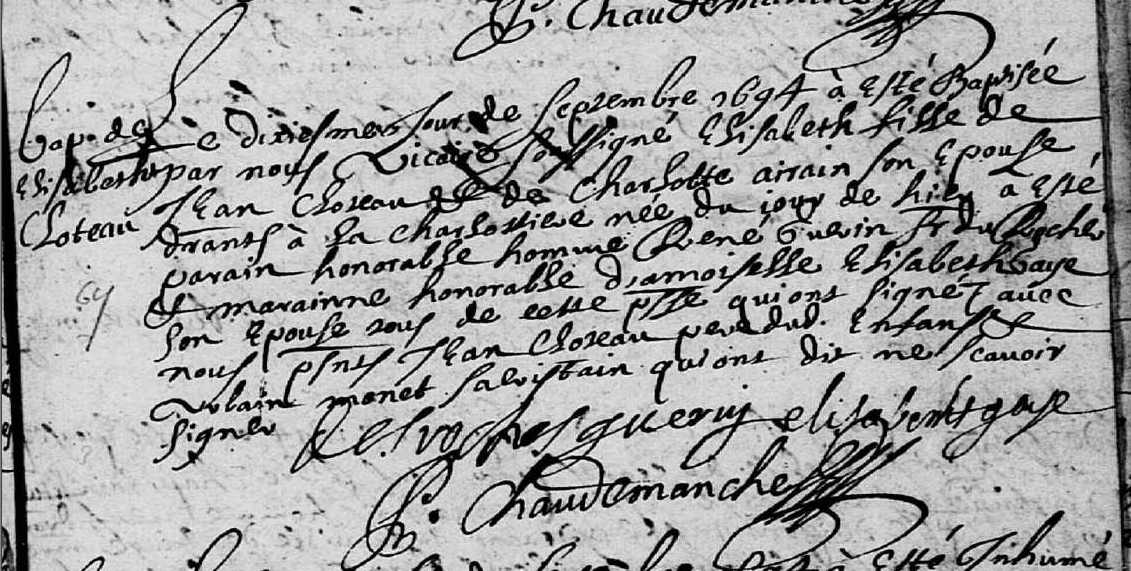 P. Chaudemanche
Bap. de
Elisabeth
Cloteau
Le dixiesme jour de Septembre 1694 à esté Baptisée
par nous Vicaire soussigné Elisabeth fille de
Jean Cloteau & de Charlotte airain son Epouse
à la Charlottiere née du jour de hier a esté
parain honorable homme René Guerin Sr du Rocher
& marainne honorable damoiselle Elisabeth Gaye
son Epouse tous de cette psse qui ont signez avec
nous psnts Jean Cloteau pere dud. Enfans &
Urbain monet sacristain qui ont dit ne scavoir
signer
69
elisabeth gaye
P. Chaudemanche
à Esté Inhumé